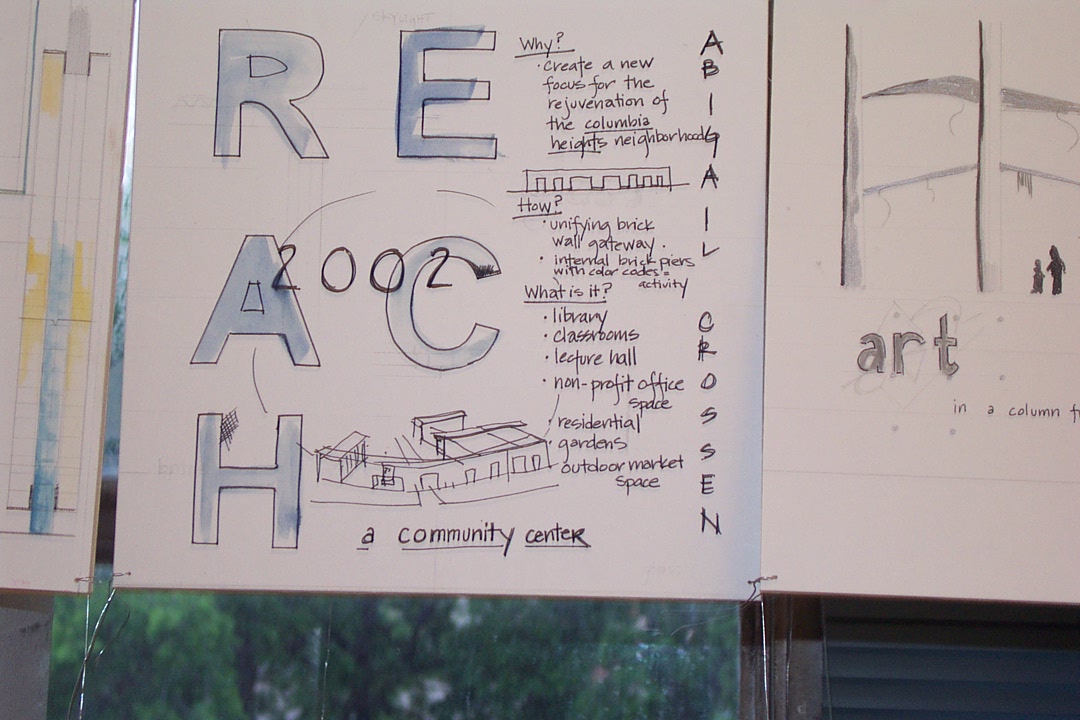 R E
A C
H
2002
Why?
• create a new
focus for the
rejuvenation of
the columbia
heights neighborhood
How?
• unifying brick
wall gateway.
• internal brick piers
with color codes =
activity
What is it?
• library
• classrooms
• lecture hall
• non-profit office
space
• residential
• gardens
outdoor market
space
a community center
ABIGAIL
CROSSEN
art
in a column